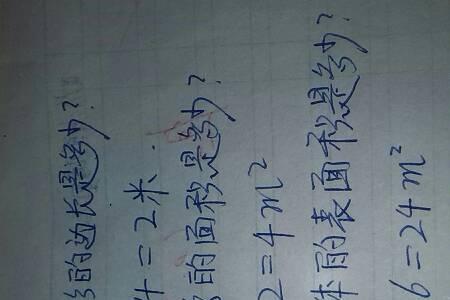 的边长是多少?
4=2米.
的面积是多少?
2=4m²
体的表面积是多少?
6=24m²